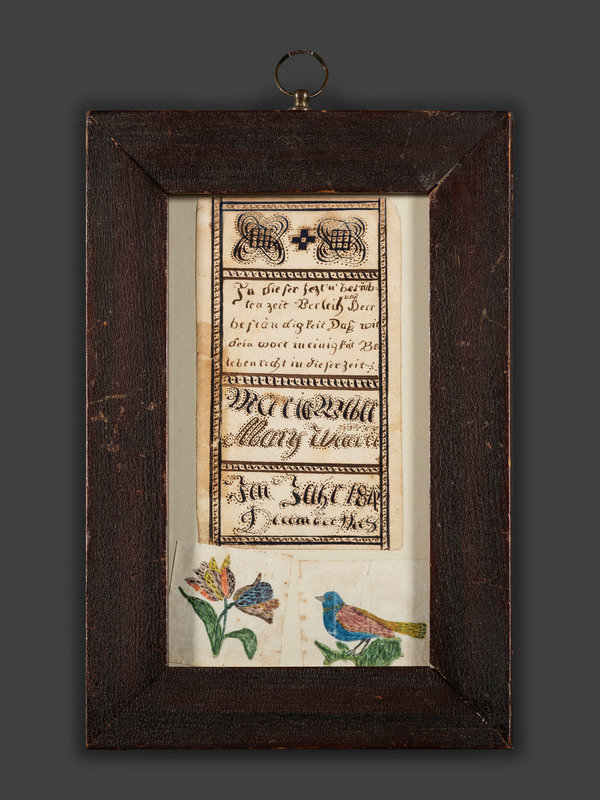 In dieser lezt'n betrüb-
ten zeit Verleih uns Herr
beständigkeit Daß wir
dein wort in einigkät Be
leben licht in dieser zeit
Maria
Mary Weaver
Im Jahr 184
December